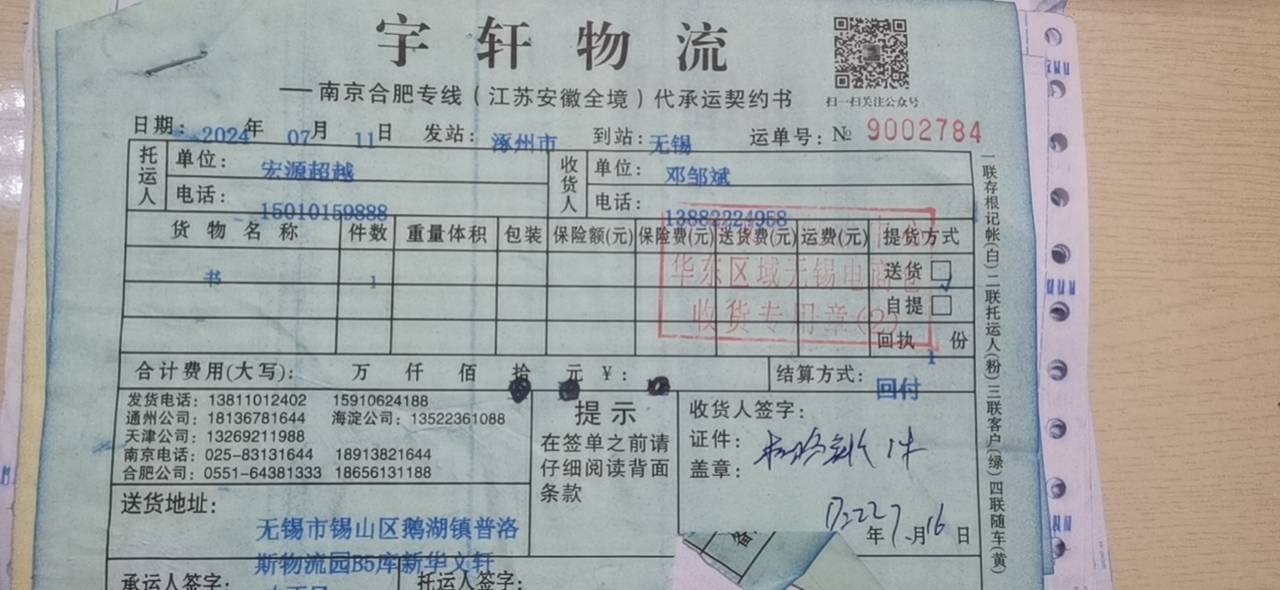 宇轩物流
扫一扫关注公众号
一南京合肥专线（江苏安徽全境）代承运契约书
日期：2024年07月11日 发站：涿州市 到站：无锡 运单号：№ 9002784
托运人 单位：宏源超越 收货人 单位：邓邹斌
电话：15010159888 电话：13882224958
货物名称 件数 重量体积 包装 保险额(元) 保险费(元) 送货费(元) 运费(元) 提货方式
书 1 送货
自提
回执 1 份
华东区域无锡电商仓
收货专用章(2)
合计费用(大写)： 万 仟 佰 拾 元 ¥： 结算方式：回付
发货电话：13811012402 15910624188
通州公司：18136781644 海淀公司：13522361088
天津公司：13269211988
南京电话：025-83131644 18913821644
合肥公司：0551-64381333 18656131188
提示
在签单之前请
仔细阅读背面
条款
收货人签字：
证件：
盖章：
年7月16日
送货地址：
无锡市锡山区鹅湖镇普洛
斯物流园B5库新华文轩
承运人签字： 托运人签字：
一联存根记帐(白)二联托运人(粉)三联客户(绿)四联随车(黄)